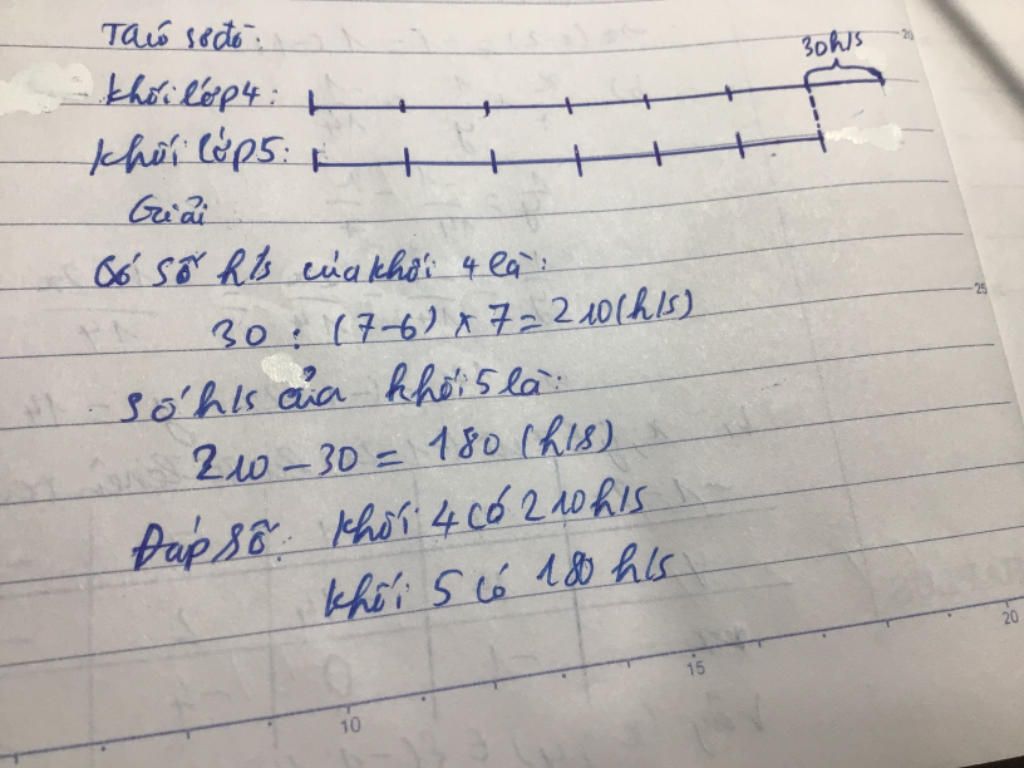 Ta có sơ đồ:
30h/s
Khối lớp4:
Khối lớp5:
Giải
Có số h/s của khối 4 là:
30 : (7-6) x 7 = 210(h/s)
Số h/s của khối 5 là:
210 - 30 = 180 (h/s)
Đáp số: Khối 4 có 210 h/s
Khối 5 có 180 h/s
20
25
10
15
20